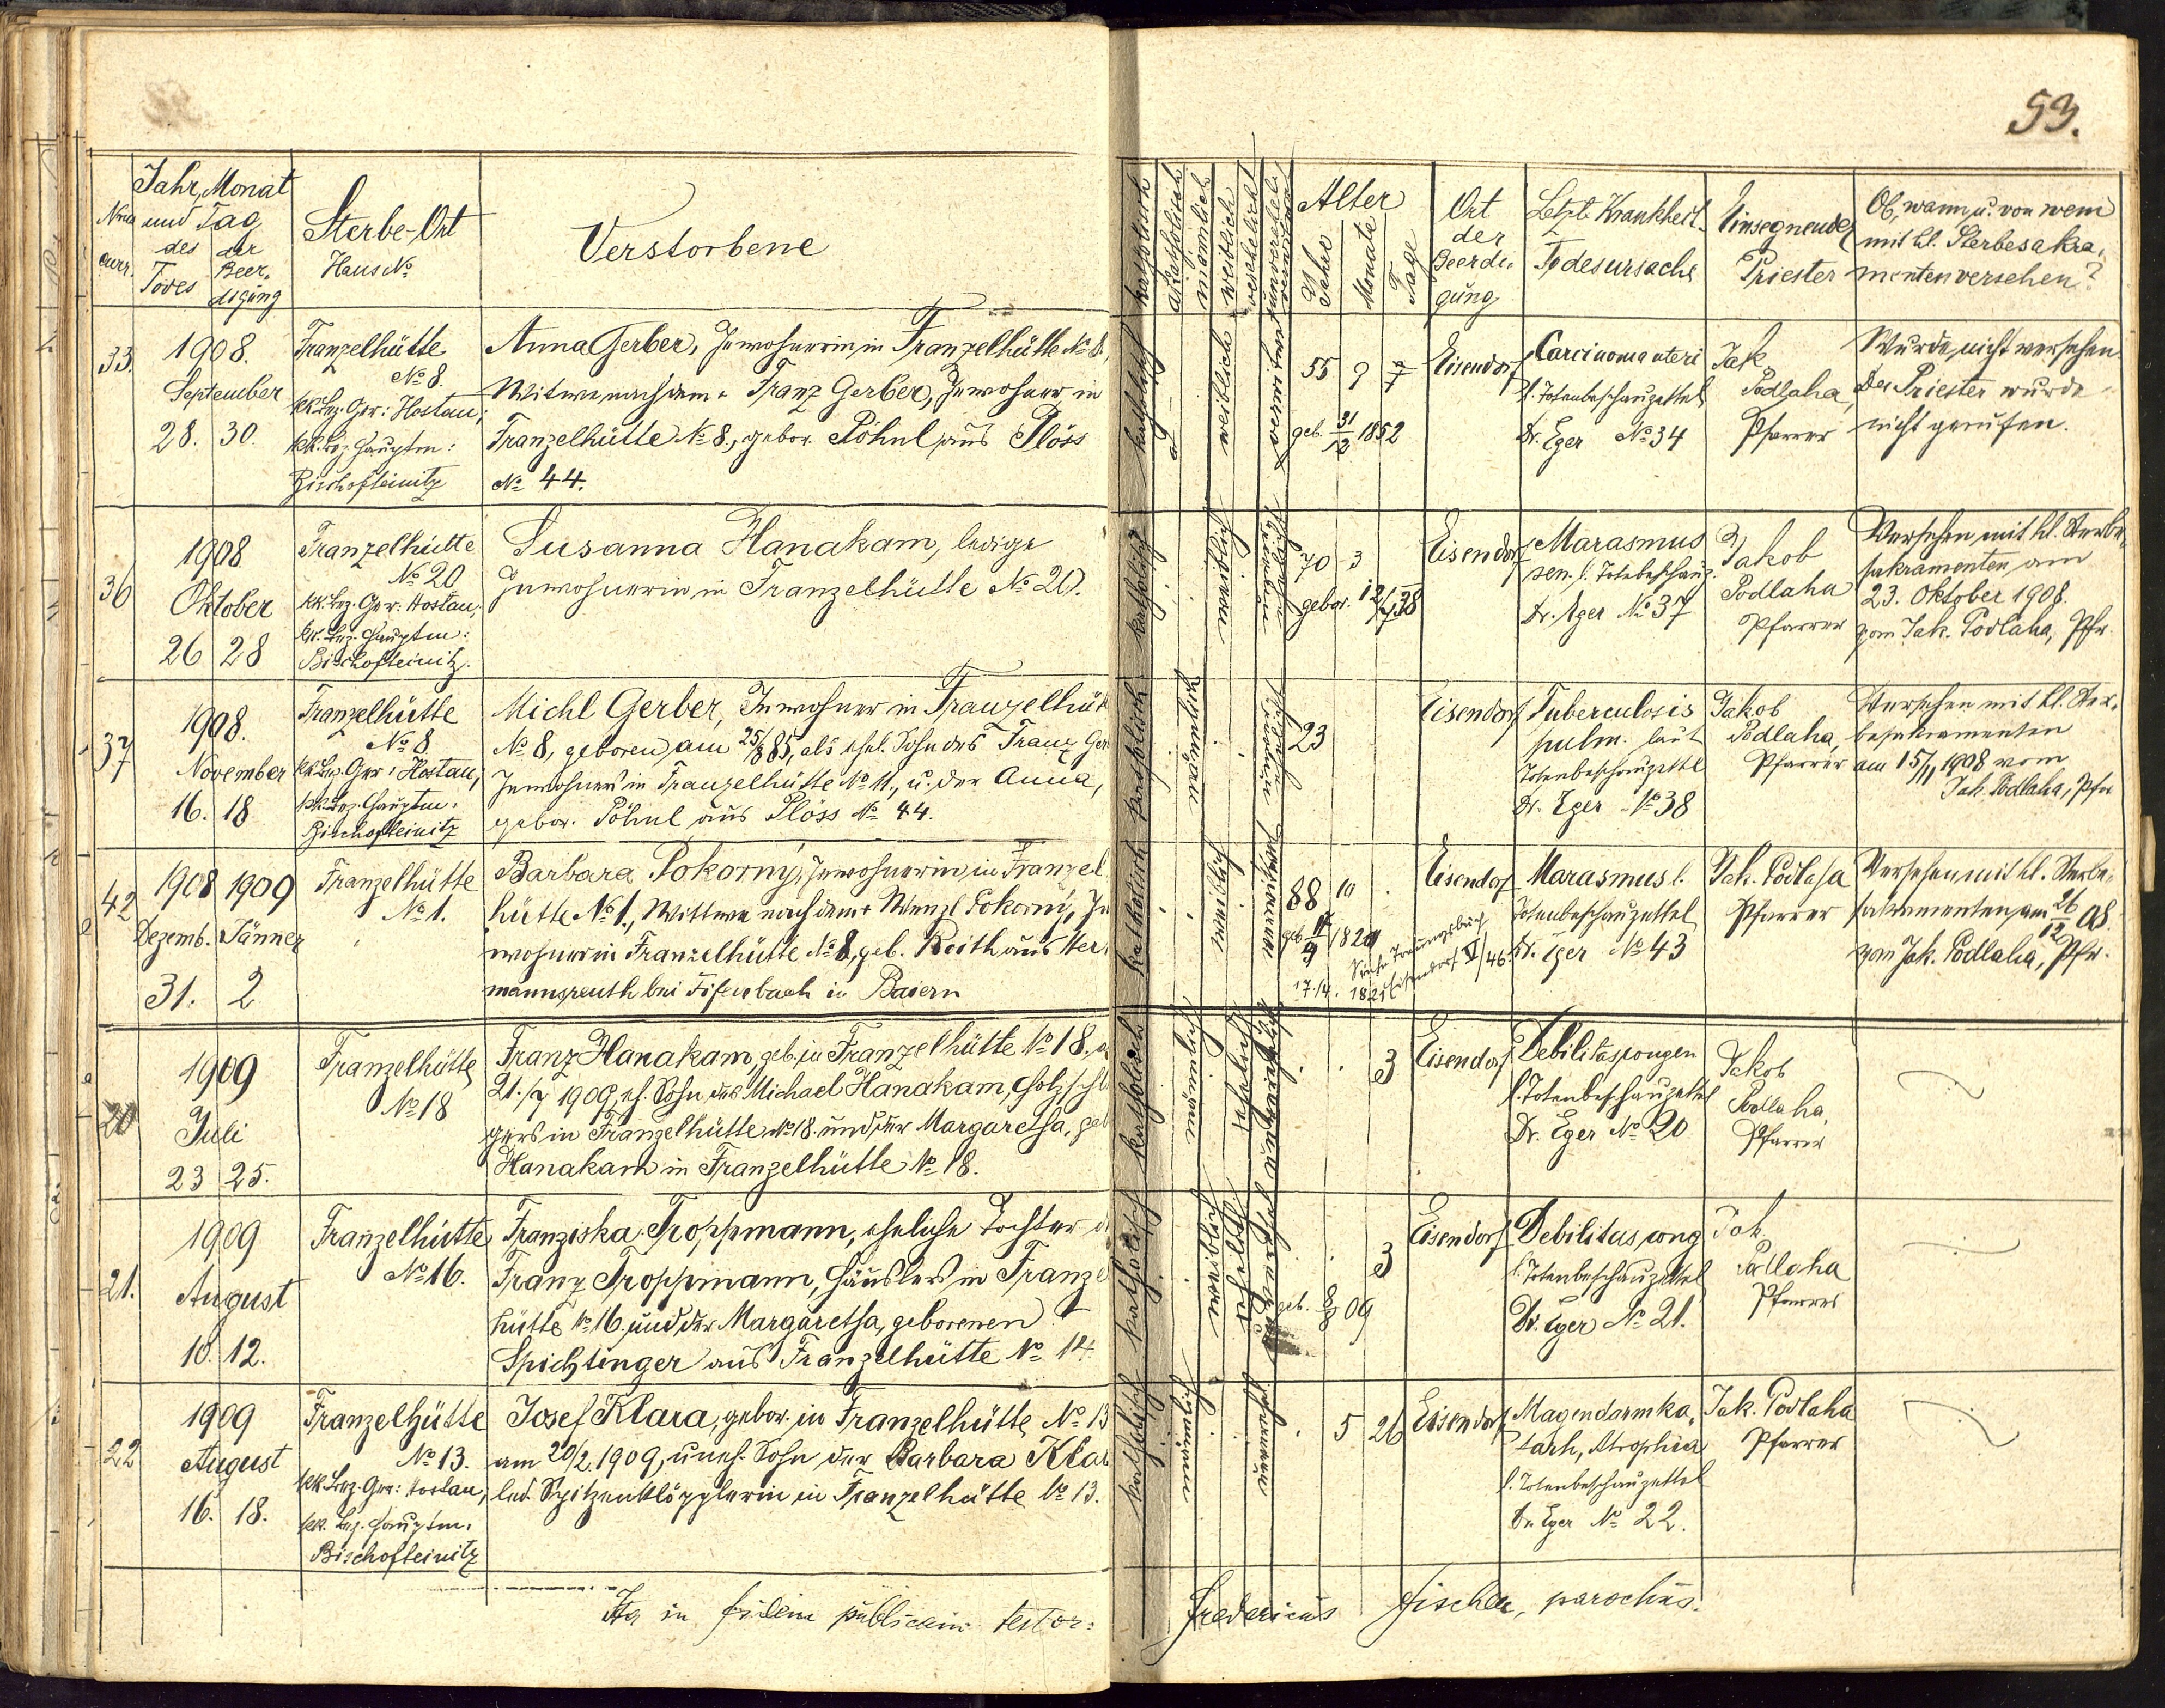 53.
Jahr, Monat
und Tag
des der
Todes Beer-
digung
Nrus
curr.
Sterbe-Ort
Haus No
Verstorbene
katholisch
akatholisch
männlich
weiblich
verehelicht
unverehelicht
Alter
Jahre
Monate
Tage
Ort
der
Beerdi-
gung
Letzte Krankheit
Todesursache
Einsegnender
Priester
Ob, wann u. von wem
mit hl. Sterbesakra-
menten versehen?
33.
1908.
September
28. 30.
Franzelhütte
No 8.
kk. Bez. Ger: Hostau;
kk. Bez. Hauptm:
Bischofteinitz
Anna Gerber, Inwohnerin in Franzelhütte No 8,
Witwe nach dem + Franz Gerber, Inwohner in
Franzelhütte No 8., gebor. Pöhnl aus Plöss
No 44.
katholisch
weiblich
verwitwet
55 9
geb. 31/12 1852
Eisendorf
Carcinoma uteri
l. Totenbeschauzettel
Dr. Eger No 34
Jak
Podlaha,
Pfarrer
Wurde nicht versehen.
Der Priester wurde
nicht gerufen.
36
1908
Oktober
26 28
Franzelhütte
No 20
kk. Bez. Ger: Hostau;
kk. Bez. Hauptm:
Bischofteinitz.
Susanna Hanakam, ledige
Inwohnerin in Franzelhütte No 20.
katholisch
weiblich
70 3
gebor. 12/7 38
Eisendorf
Marasmus
sen. l. Totebeschauz.
Dr. Eger No 37
Jakob
Podlaha
Pfarrer
Versehen mit hl. Sterbe-
sakramenten am
23. Oktober 1908.
vom Jak. Podlaha, Pfr.
37
1908.
November
16. 18
Franzelhütte
No 8
kk. Bez. Ger: Hostau;
kk. Bez. Hauptm:
Bischofteinitz
Michl Gerber, Inwohner in Franzelhüt
No 8, geboren am 25/8 85, als ehel. Sohn des Franz Ger
Inwohners in Franzelhütte No 11., u. der Anna,
gebor. Pöhnl aus Plöss No 44.
katholisch
23
Eisendorf
Tuberculosis
pulm. laut
Totenbeschauzettel
Dr. Eger No 38
Jakob
Podlaha,
Pfarrer
Versehen mit hl. Ster-
besakramenten
am 15/11 1908 vom
Jak. Podlaha, Pfr
42
1908 1909
Dezemb. Jänner
31. 2
Franzelhütte
No 1.
Barbara Pokorný, Inwohnerin in Franzel
hütte No 1., Wittwe nach dem + Wenzl Pokorný, In
wohner in Franzelhütte No 8, geb. Reith aus Her
mannsreuth bei in Baiern
katholisch
weiblich
88 10
Siehe Trauungsbuch
Eisendorf VI/46
17./4. 1821
Eisendorf
Marasmus l.
Totenbeschauzettel
Dr. Eger No 43
Jak. Podlaha
Pfarrer
Versehen mit hl. Sterbe-
sakramenten am 26/12 08.
vom Jak. Podlaha, Pfr.
20
1909
Juli
23 25.
Franzelhütte
No 18
Franz Hanakam, geb. in Franzelhütte No 18. a
21./7 1909, eh. Sohn des Michael Hanakam, Holzschl
gers in Franzelhütte No 18. und der Margaretha, geb
Hanakam in Franzelhütte No 18.
katholisch
3
Eisendorf
Debilitas congen
l. Totenbeschauzettel
Dr. Eger No 20
Jakob
Podlaha,
Pfarrer
21.
1909
August
10. 12.
Franzelhütte
No 16.
Franziska Troppmann, eheliche Tochter d
Franz Troppmann, Häuslers in Franzel
hütte No 16 und der Margaretha, geborenen
Spichtinger aus Franzelhütte No 14.
katholisch
weiblich
3
geb. 8/8 09
Eisendorf
Debilitas cong
l. Totenbeschauzettel
Dr. Eger No 21.
Jak.
Podlaha
Pfarrer
22
1909
August
16. 18.
Franzelhütte
No 13.
kk. Bez. Ger: Hostau,
kk. Bez. Hauptm.
Bischofteinitz
Josef Klara, gebor. in Franzelhütte No 13
am 20/2. 1909, uneh. Sohn der Barbara Klar
led. Spitzenklöpplerin in Franzelhütte No 13.
katholisch
5 26
Eisendorf
Magendarmka-
tarh, Atrophia
l. Totenbeschauzettel
Dr. Eger No 22.
Jak. Podlaha
Pfarrer
Ita in fidem publicam testor:
Fredericus Fischer, parochus.